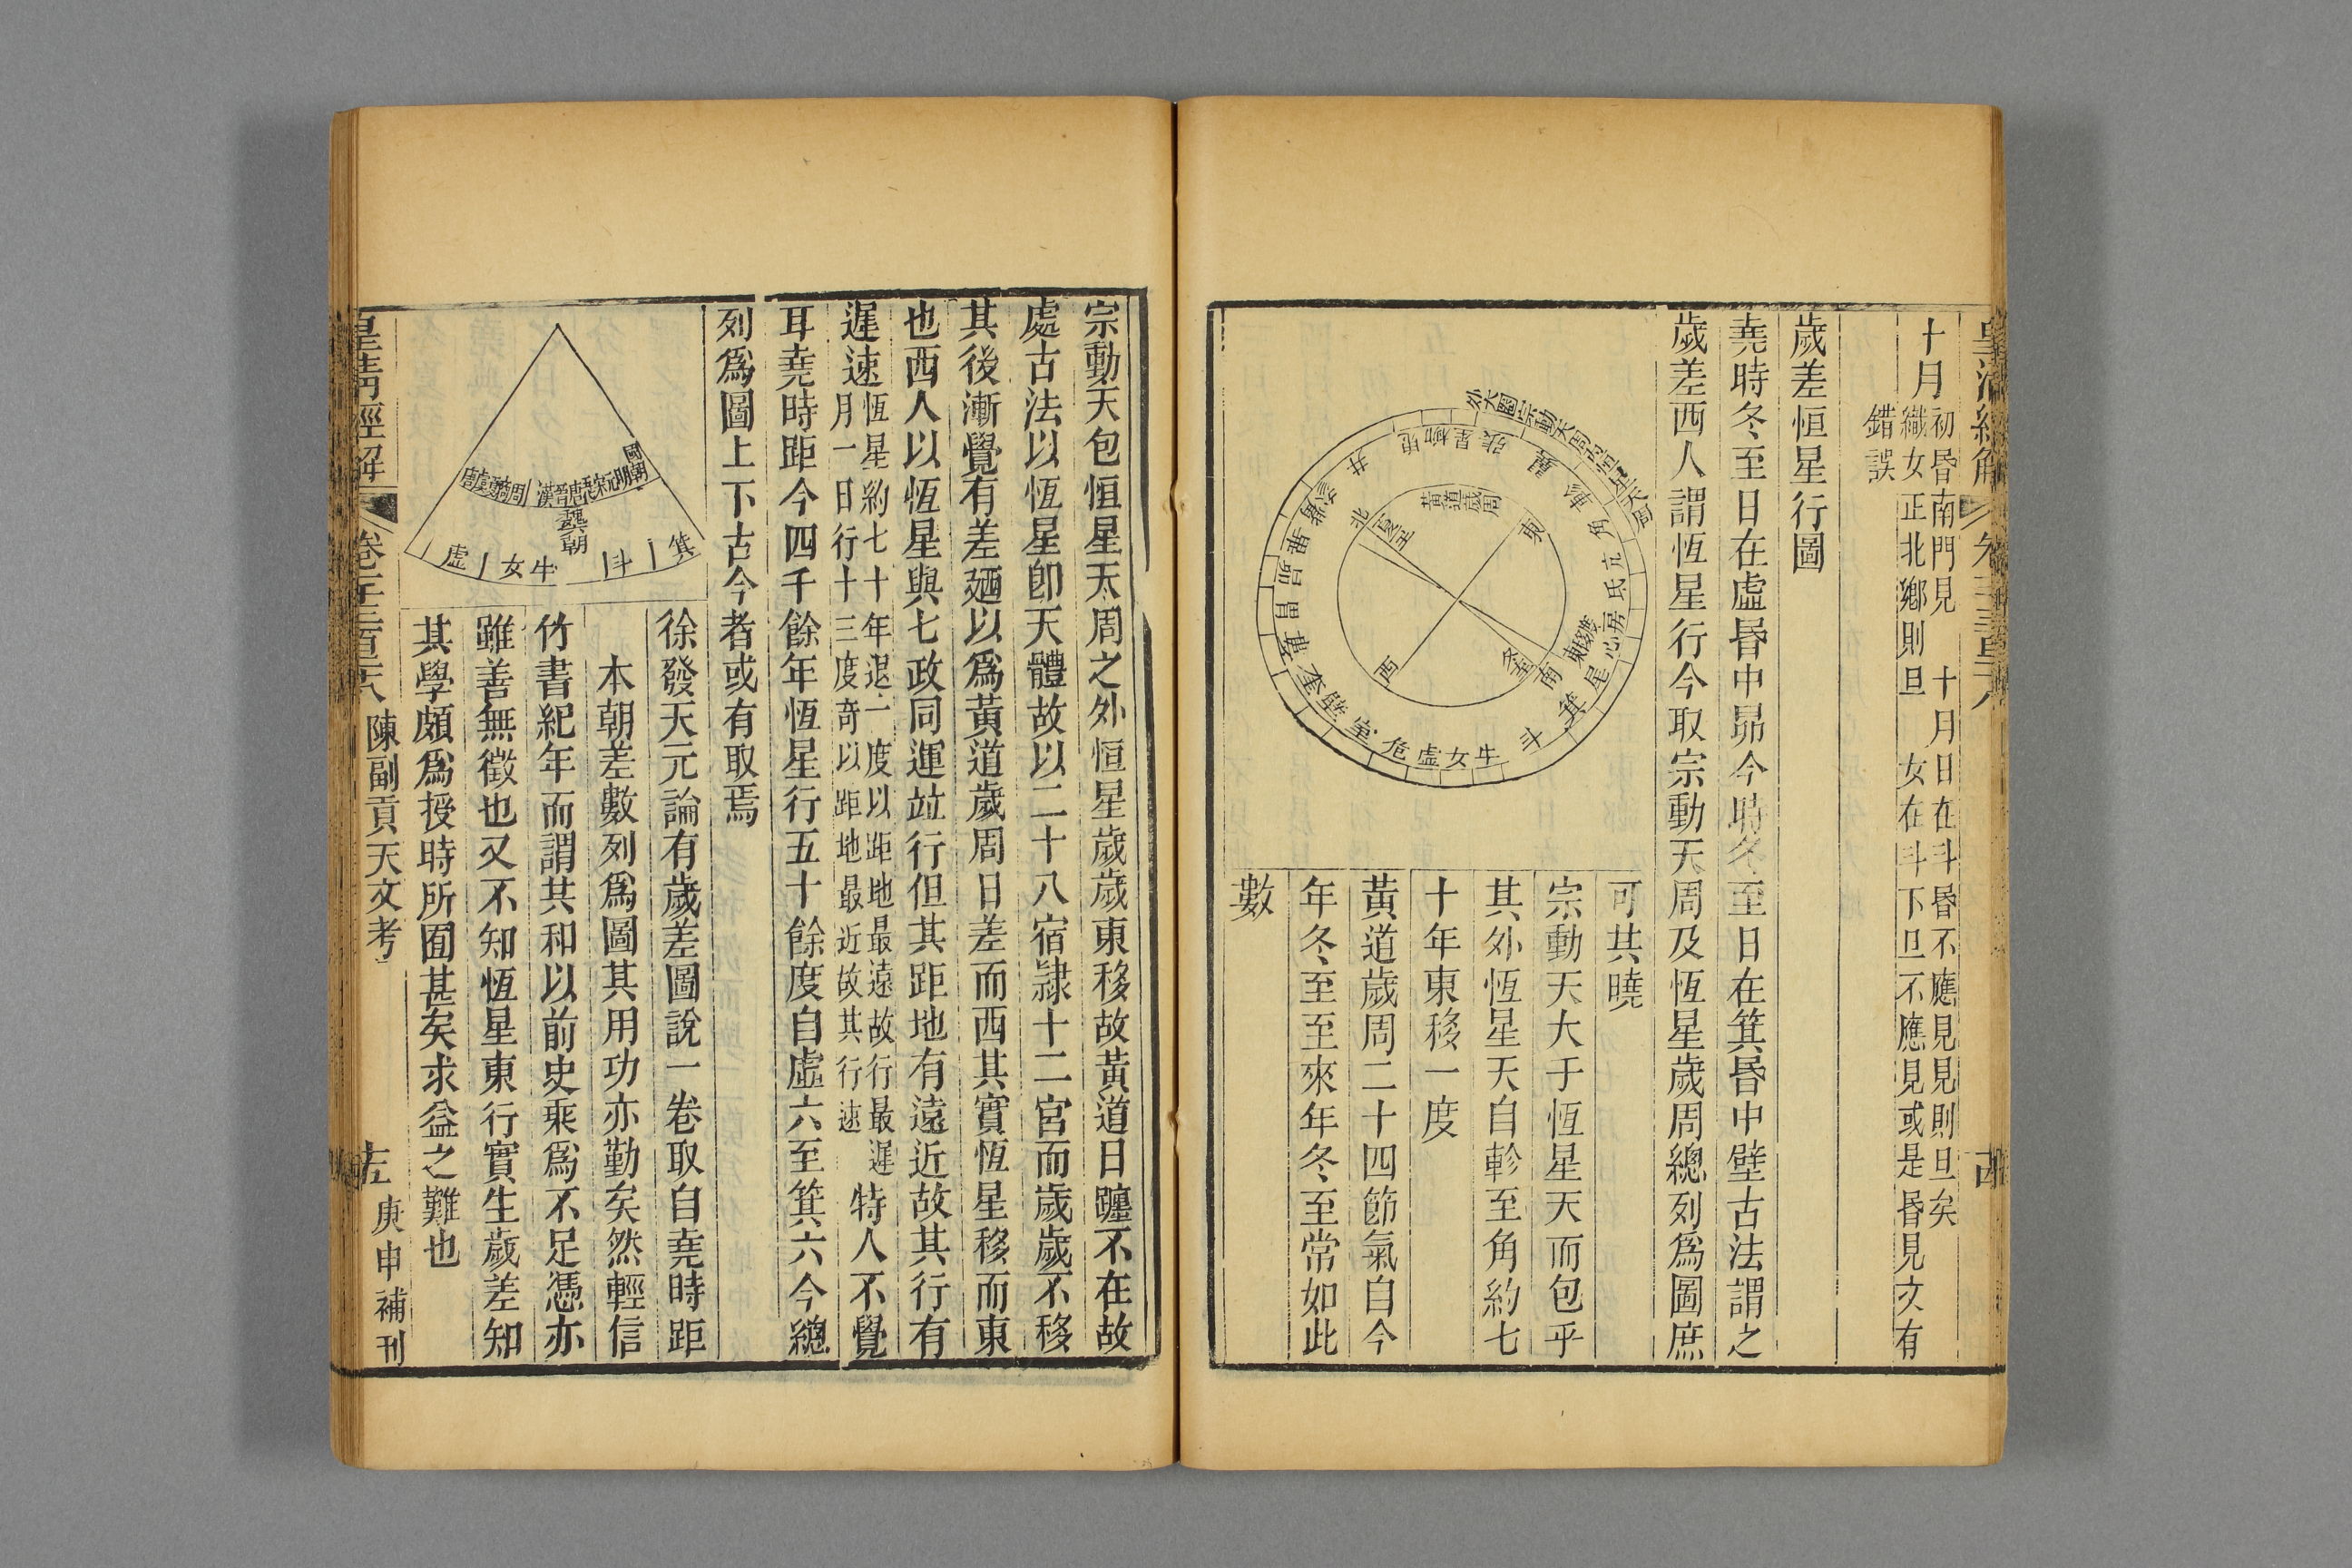 十月
初昏南門見 十月日在斗昏不應見見則旦矣
織女正北鄉則旦 女在斗下旦不應見或是昏見文有
錯誤
歲差恒星行圖
堯時冬至日在虛昏中昴今時冬至日在箕昏中壁古法謂之
歲差西人謂恆星行今取宗動天周及恆星歲周總列為圖庶
可其曉
宗動天大于恆星天而包乎
其外恆星天自軫至角約七
十年東移一度
黃道歲周二十四節氣自今
年冬至至來年冬至常如此
數
外大圈宗動天周內恒星天周
黃道歲周
東
南
西
北
夏至
冬至
角
亢
氐
房
心
尾
箕
斗
牛
女
虛
危
室
壁
奎
婁
胃
昴
畢
觜
參
井
鬼
柳
星
張
翼
軫
宗動天包恒星天周之外恒星歲歲東移故黃道日躔不在故
處古法以恆星卽天體故以二十八宿隸十二宮而歲歲不移
其後漸覺有差廼以為黃道歲周日差而西其實恆星移而東
也西人以恆星與七政同運竝行但其距地有遠近故其行有
遲速恆星約七十年退一度以距地最遠故行最遲
月一日行十三度奇以距地最近故其行速 特人不覺
耳堯時距今四千餘年恆星行五十餘度自虛六至箕六今總
列為圖上下古今者或有取焉
國朝
明
元
宋
唐
晉
漢
周
商
夏
虞
唐
箕
斗
牛
女
虛
徐發天元論有歲差圖說一卷取自堯時距
本朝差數列為圖其用功亦勤矣然輕信
竹書紀年而謂共和以前史乘為不足憑亦
雖善無徵也又不知恆星東行實生歲差知
其學頗為授時所囿甚矣求益之難也
皇清經解
陳副貢天文考
庚申補刊